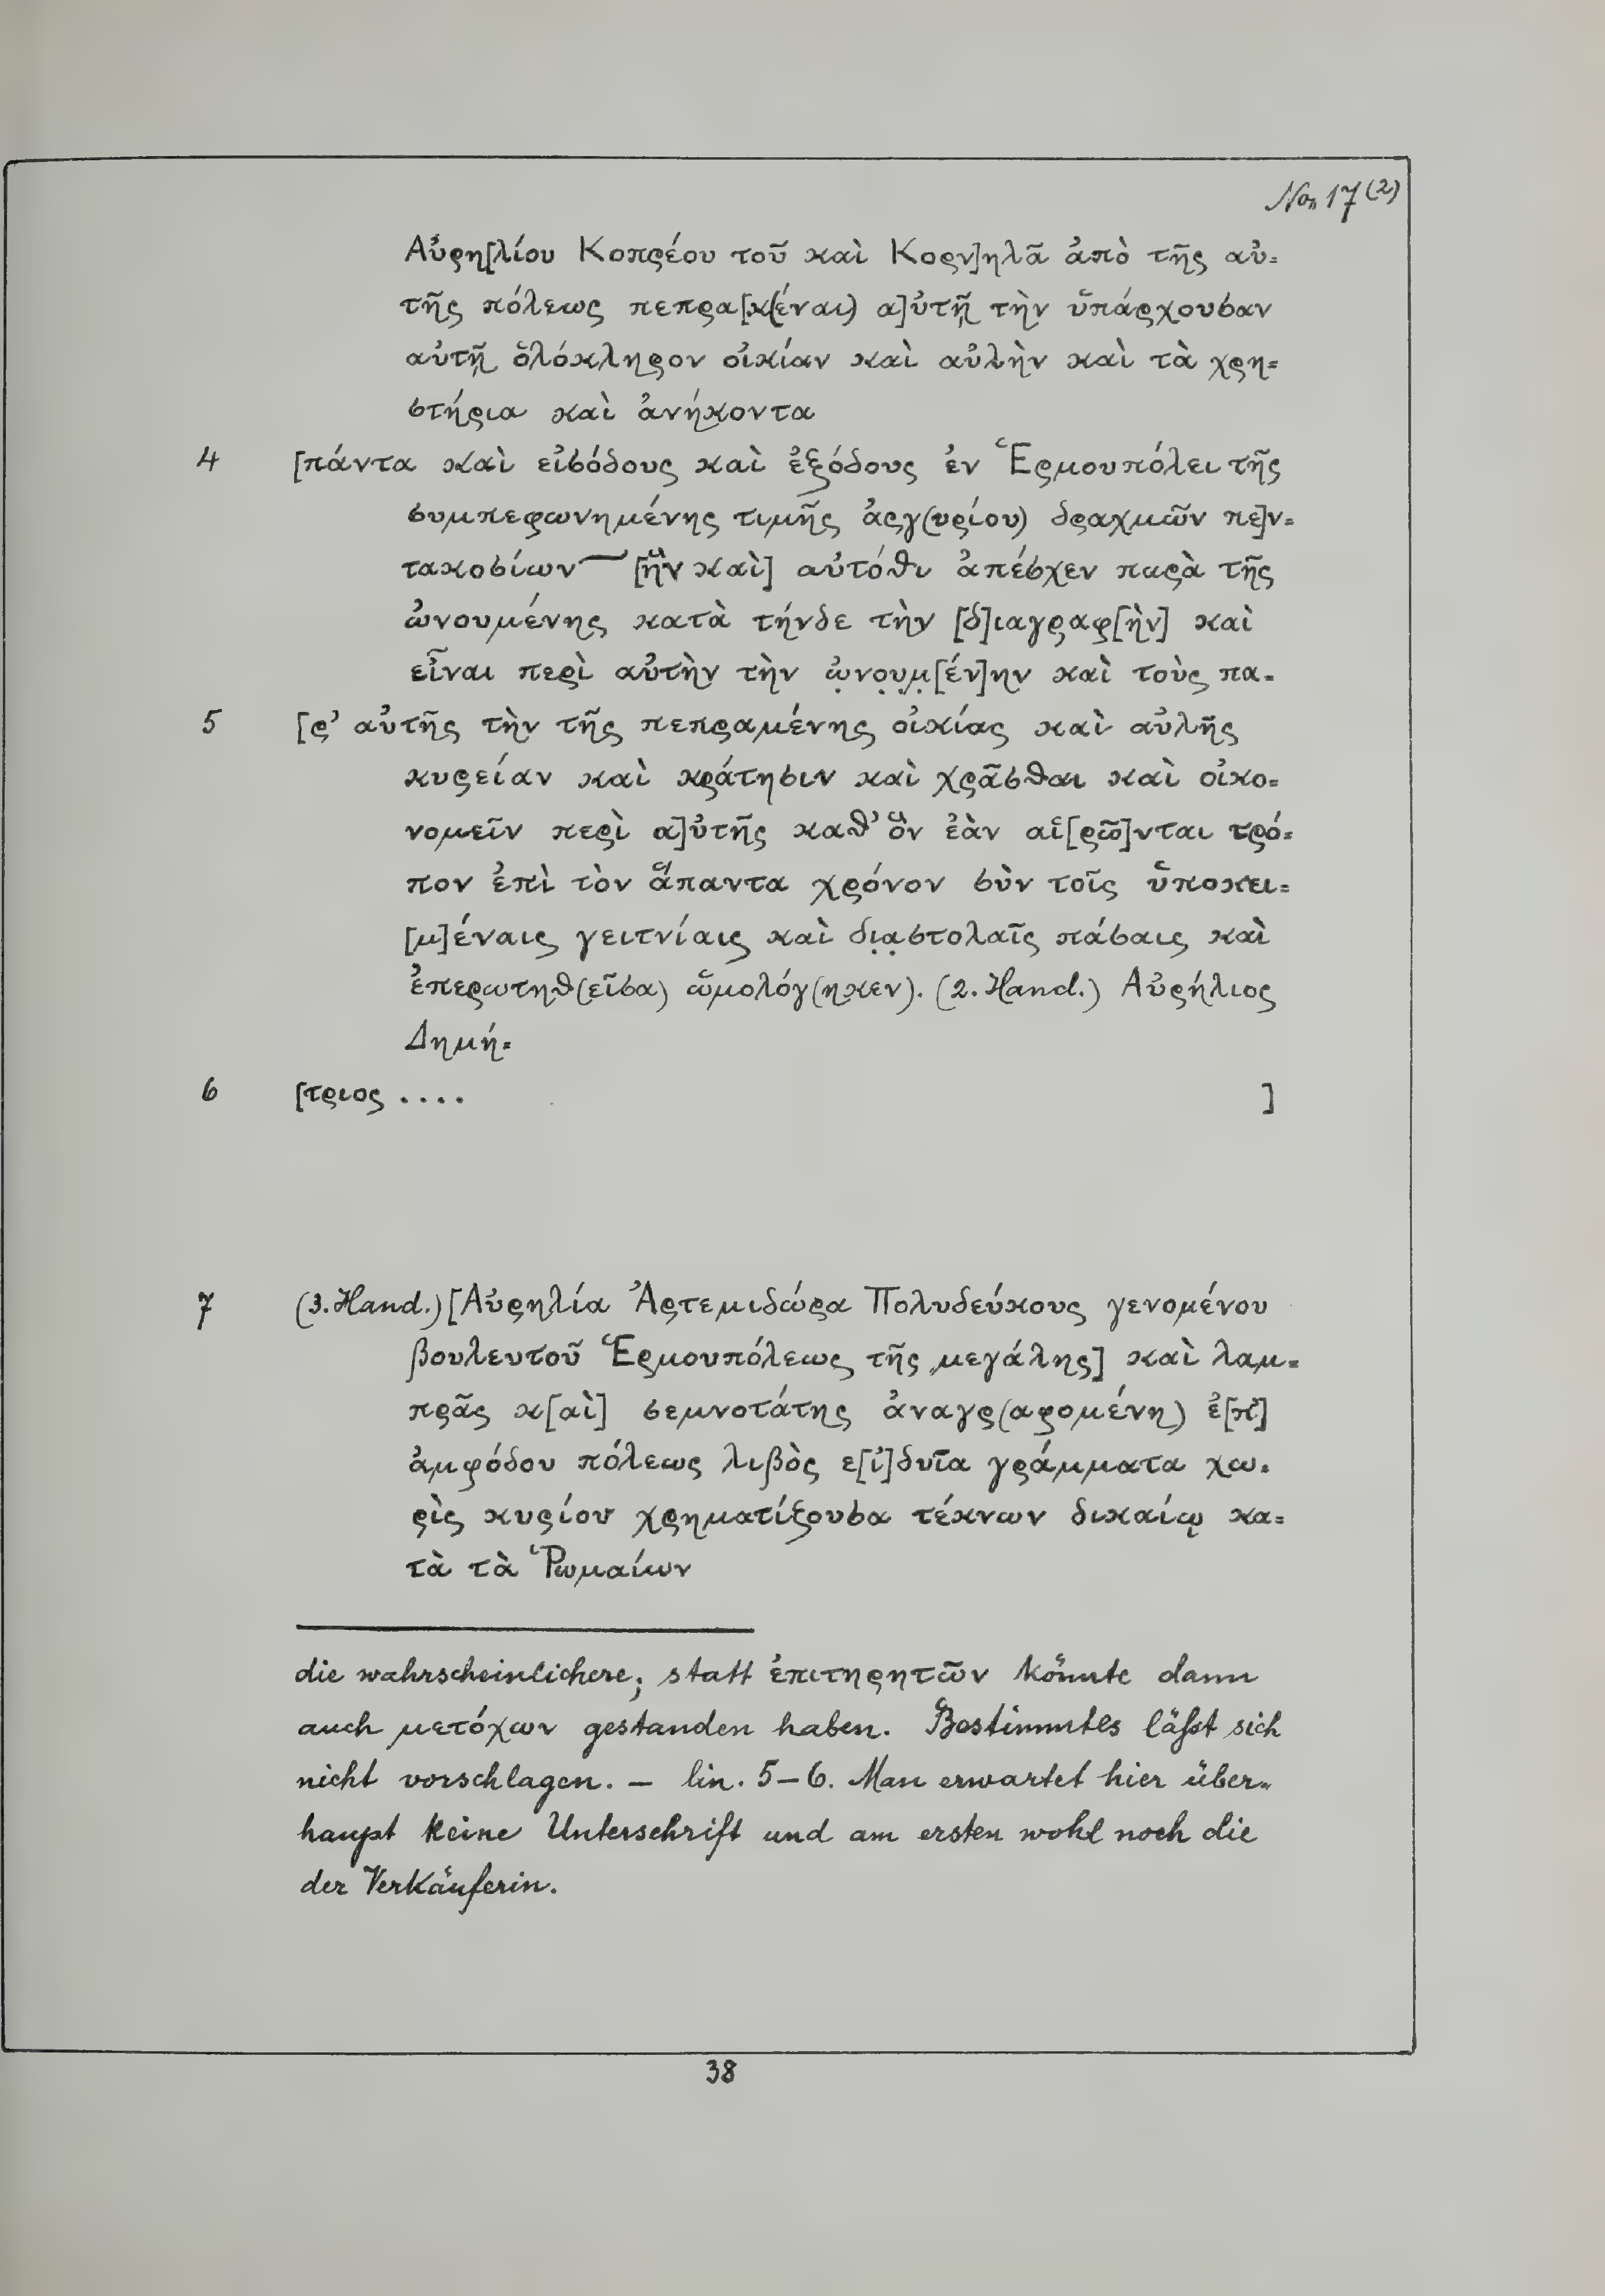 No. 17 (2)
Αὐρη[λίου Κοπρέου τοῦ καὶ Κορν]ηλᾶ ἀπὸ τῆς αὐ=
τῆς πόλεως πεπρα[κ(έναι) α]ὐτῇ τὴν ὑπάρχουσαν
αὐτῇ ὁλόκληρον οἰκίαν καὶ αὐλὴν καὶ τὰ χρη=
στήρια καὶ ἀνήκοντα
4 [πάντα καὶ εἰσόδους καὶ ἐξόδους ἐν Ἑρμουπόλει τῆς
συμπεφωνημένης τιμῆς ἀργ(υρίου) δραχμῶν πε]ν=
τακοσίων [ἣν καὶ] αὐτόθι ἀπέσχεν παρὰ τῆς
ὠνουμένης κατὰ τήνδε τὴν [δ]ιαγραφ[ὴν] καὶ
εἶναι περὶ αὐτὴν τὴν ὠ̣νο̣υ̣μ̣[έν]ην καὶ τοὺς πα=
5 [ρ’ αὐτῆς τὴν τῆς πεπραμένης οἰκίας καὶ αὐλῆς
κυρείαν καὶ κράτησιν καὶ χρᾶσθαι καὶ οἰκο=
νομεῖν περὶ α]ὐτῆς καθ’ ὃν ἐὰν αἱ[ρῶ]νται τρό=
πον ἐπὶ τὸν ἅπαντα χρόνον σὺν τοῖς ὑποκει=
[μ]έναις γειτνίαις καὶ δι̣α̣στολαῖς πάσαις καὶ
ἐπερωτηθ(εῖσα) ὡμολόγ(ηκεν). (2. Hand.) Αὐρήλιος
Δημή=
6 [τριος .... ]
7 (3. Hand.) [Αὐρηλία Ἀρτεμιδώρα Πολυδεύκους γενομένου
βουλευτοῦ Ἑρμουπόλεως τῆς μεγάλης] καὶ λαμ=
πρᾶς κ[αὶ] σεμνοτάτης ἀναγρ(αφομένη) ἐ[π’]
ἀμφόδου πόλεως λιβὸς ε[ἰ]δυῖα γράμματα χω=
ρὶς κυρίου χρηματίζουσα τέκνων δικαίῳ κα=
τὰ τὰ Ῥωμαίων
die wahrscheinlichere; statt ἐπιτηρητῶν könnte dann
auch μετόχων gestanden haben. Bestimmtes läßt sich
nicht vorschlagen. — lin. 5–6. Man erwartet hier über=
haupt keine Unterschrift und am ersten wohl noch die
der Verkäuferin.
38